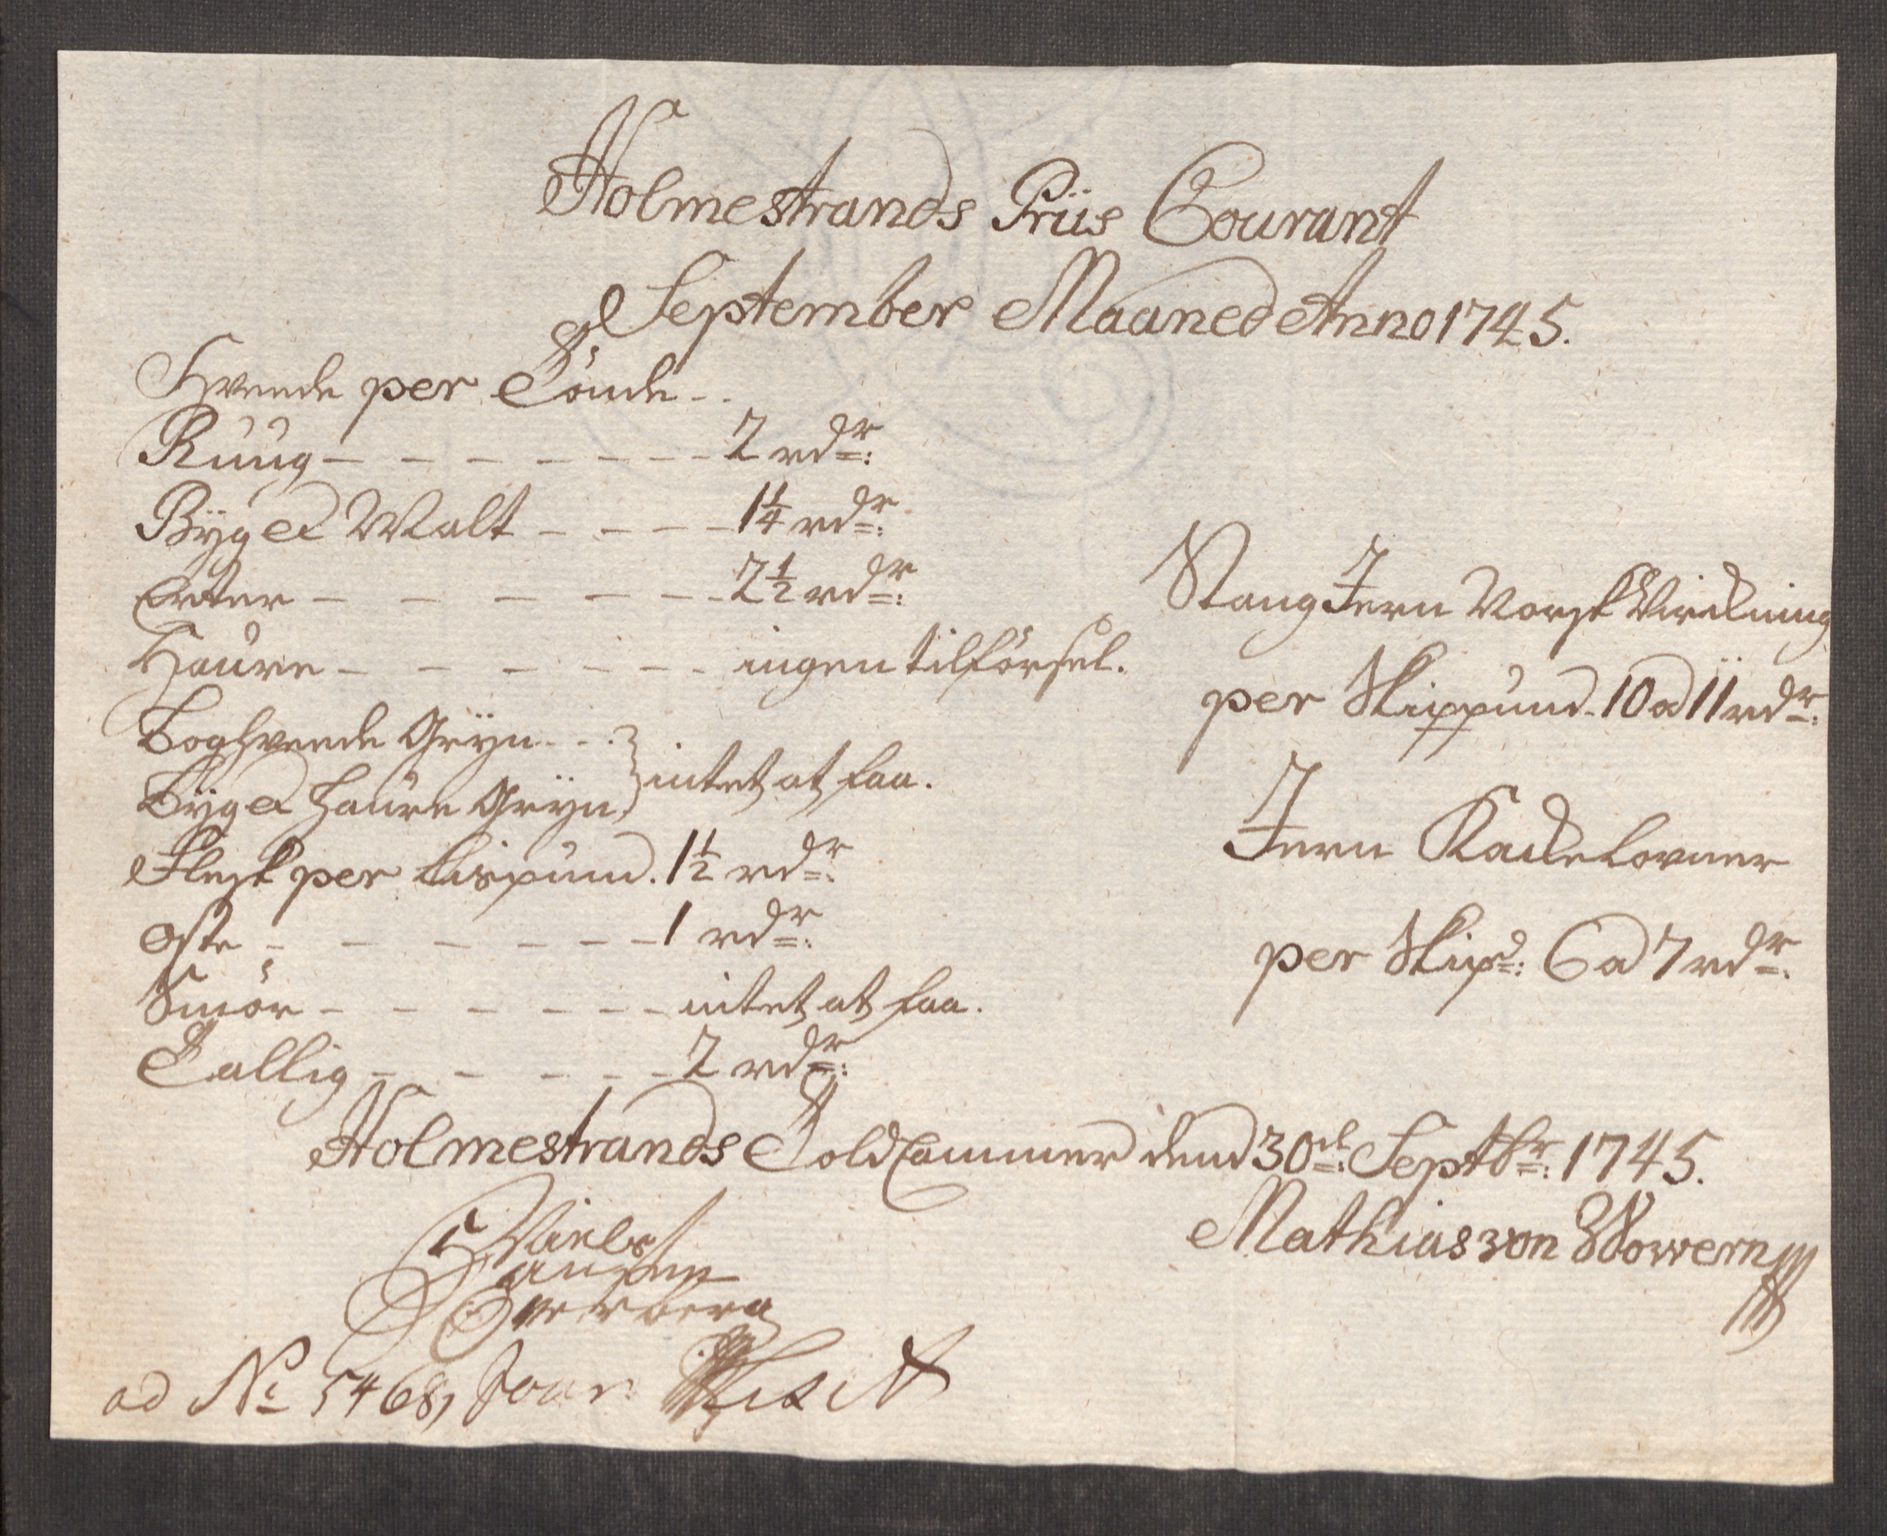 Holmestrands Priis Courant
September Maaned Anno 1745.
Hveede per Tönde
Ruug 2 rdr:
Byg et Malt 1 1/4 rdr:
Erter 2 1/2 rdr:
Haure ingen tilförsel.
Boghveede Gryn
Byg et haure Gryn } intet at faa.
Flesk per Lispund. 1 1/2 rdr:
Oste 1 rdr:
Smör intet at faa.
Tallig 2 rdr:
Stang Jern Norsk Virckning
per Skippund. 10 a 11 rdr:
Jern Kackelovner
per Skipd: 6 a 7 rdr:
Holmestrands Told Cammer dend 30te: Septbr: 1745.
Niels
Mathias von Wowern
ad No 5468, Jour: